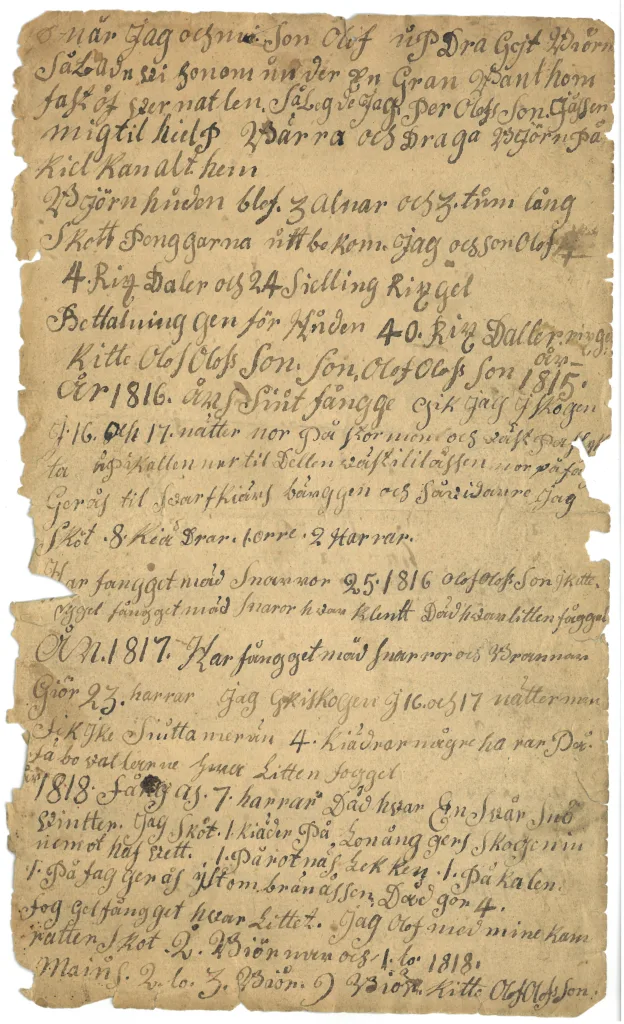 när Jag och min Son Olof upDra Gejt Biörn
Såladn vi honom un der En Gran Bant hom
fast öf ver nat len. Såleg de Jag Per Olofs Son. Jässer
mig til hielP Bärra och Draga Björn På
kiel kan alt hem
Björn huden blef. 3 alnar och 3. tum lång
Skott Penggarna utt be kom. Jag och son Olof
4. Rix Daler och 24 Sielling Rixgel
Bettalning gen för Huden 40. Rix Daller rixge
Kitte Olof Olofs Son. Son, Olof Olofs Son 1815.
År 1816. Åns Siut fångge Gik Jag J skogen
J. 16. och 17. nätter nor På kormen och väst På
ta til Dellen nor på
Gerås til Svartkiärs bärggen och Så vidarre Jag
Sköt. 8. Kiä Drar. 1. orre. 2 Harrar.
Har fångget mäd Snarror 25. 1816 Olof Olofs Son Kitte.
fyggel fångget mäd Snaror hvar klentt Dåd hvar litten fåggel
ÅN. 1817. Har fångget mäd snarror och Brannar
Giör 23. harrar Jag Gkiskogen J 16. och 17 nätter men
Fik Jke Siutta mer än 4. kiädrar några ha rar På.
fä bo val larne Litten foggel
1818. Fång as. 7. harrar Dåd hvar En Svår Snö
vintter. Jag Sköt. 1. kiäder På Lonång gers Skogen in
nemot haf vett. 1. På rotnäs Lekken. 1. På kalen.
1. På fag gerås ystom brånåssen. Dåd gör 4.
fog gel fångget hvar Littet. Jag Olof med mine kam
ratter Skot. 2. Biörnar och 1. lo. 1818.
Mains. 2. lo. 3. Biör. 9 Biör. Kitte Olof Olofs Son.